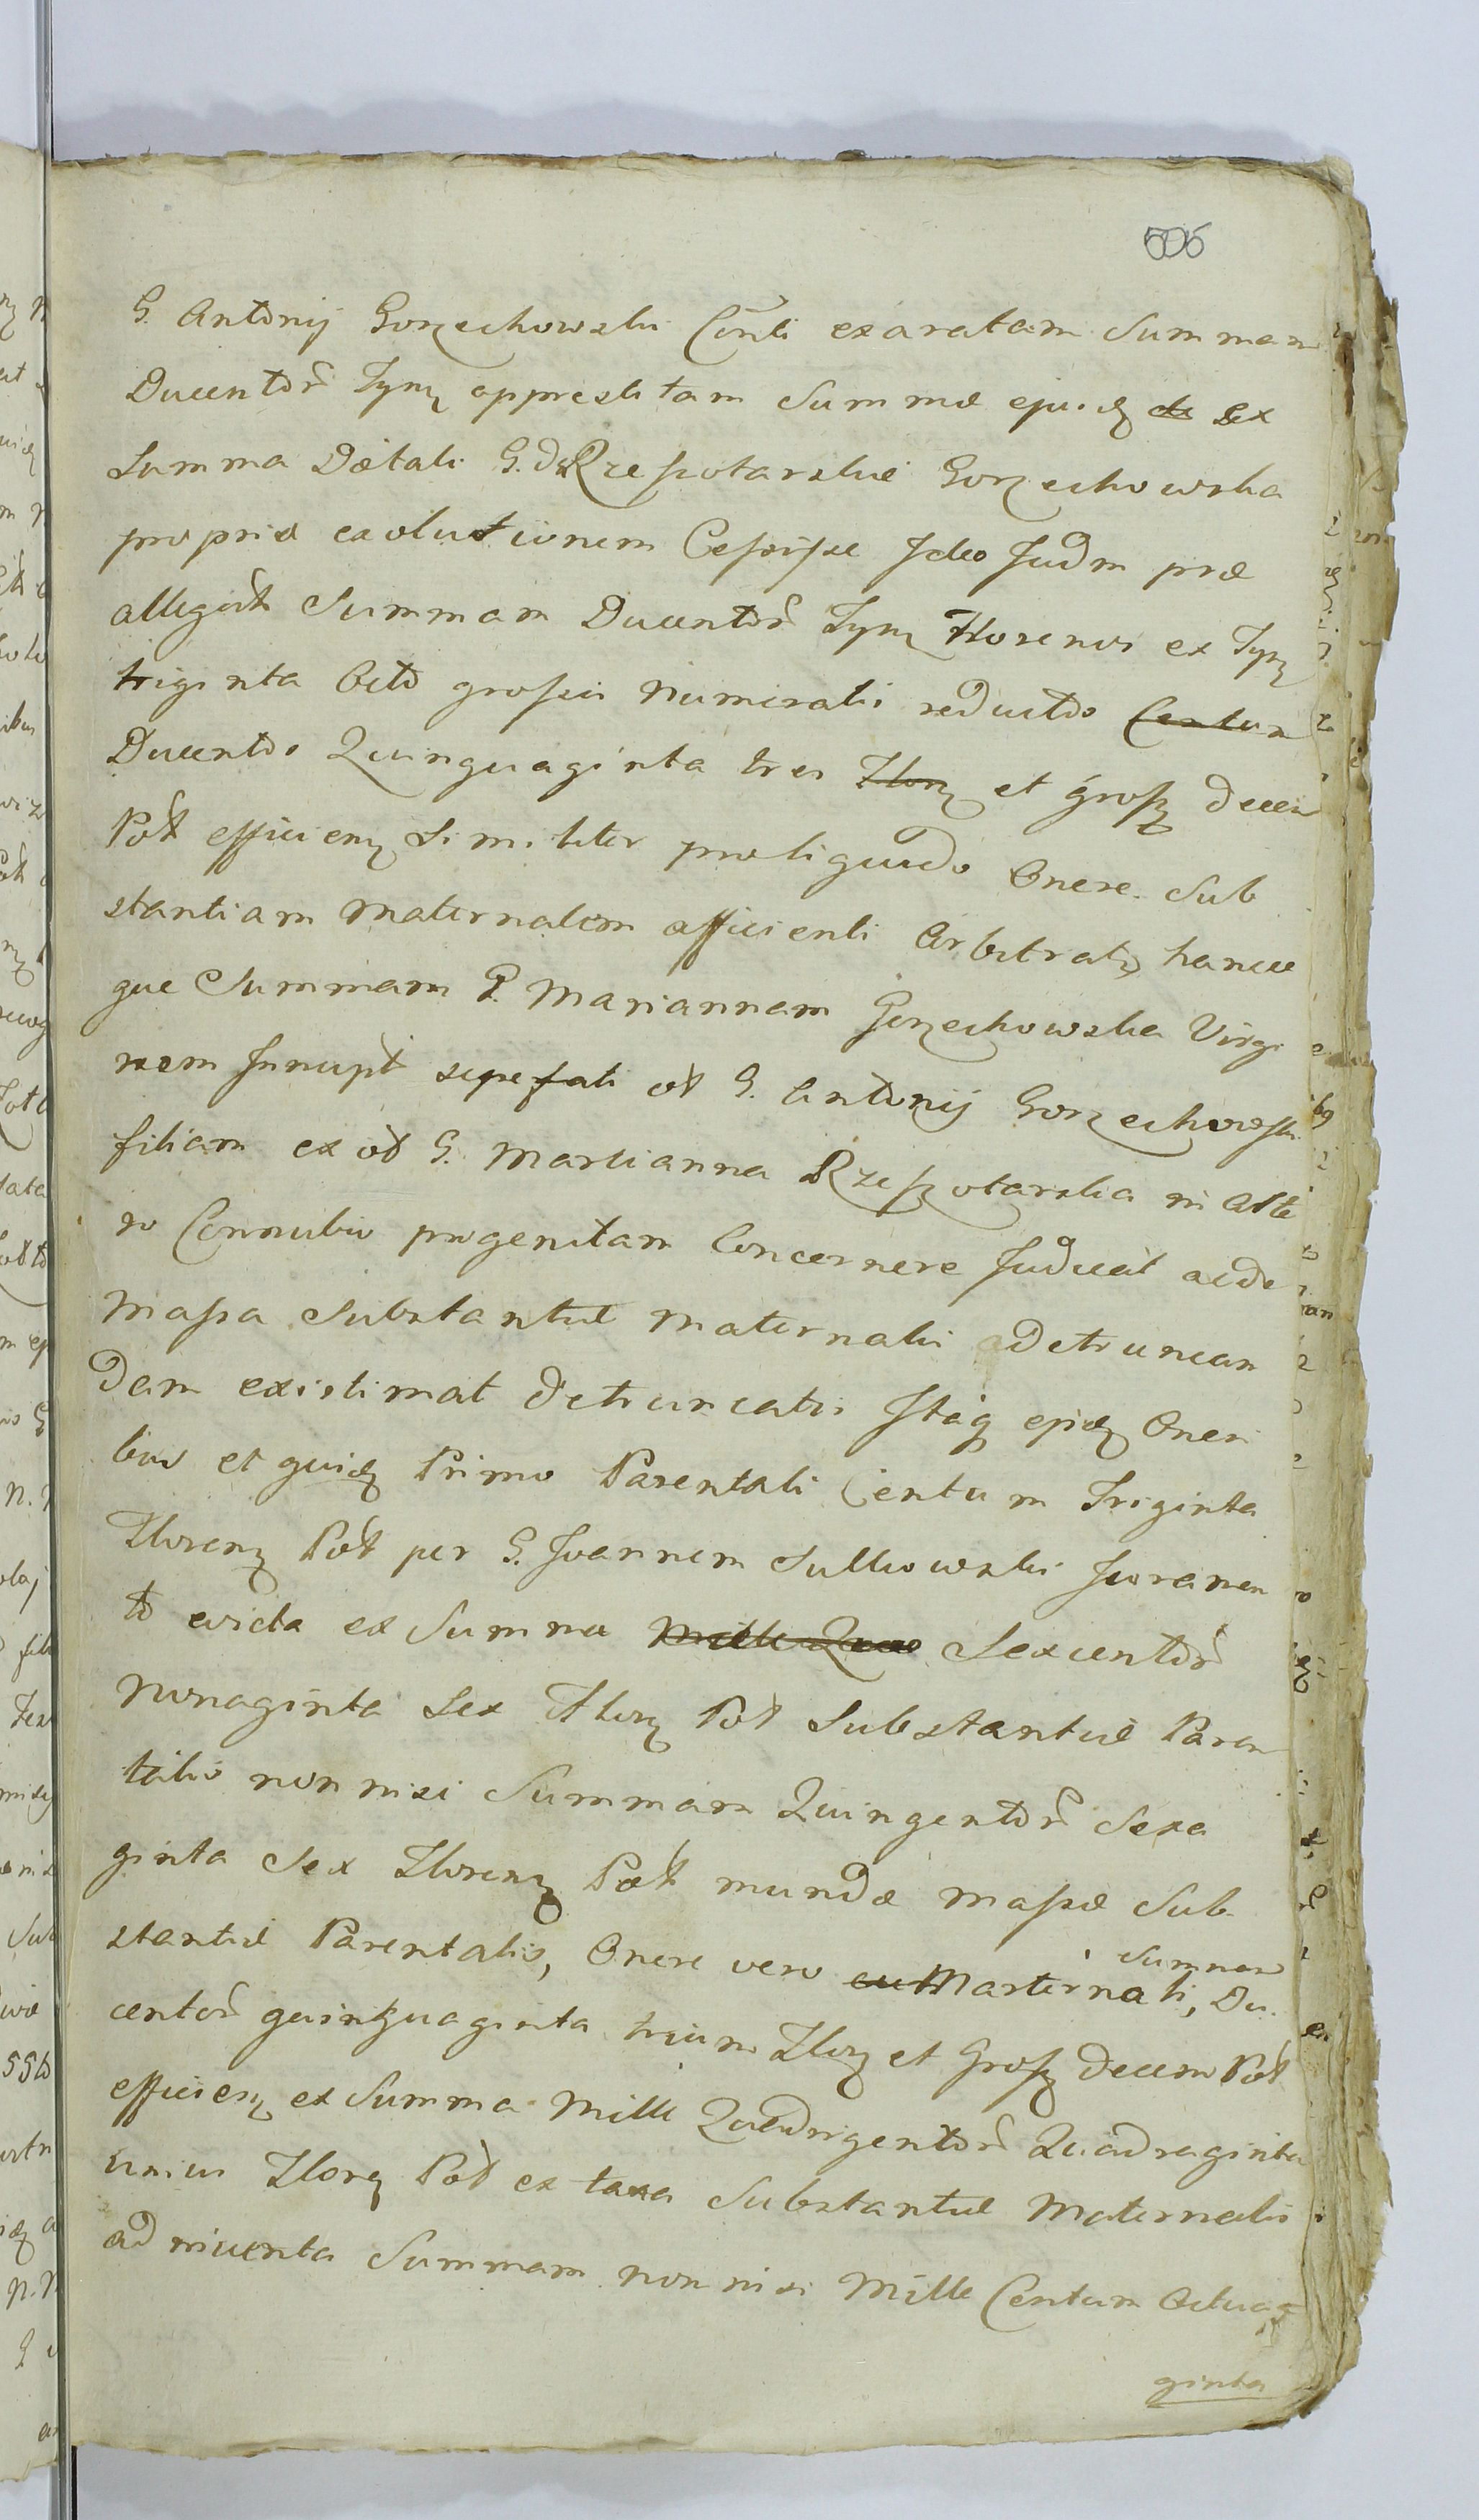 506
G. Antonij Gorzechowski Conti exaratam Summam
Ducentor Tynf apprestitam Summæ ejusd de sex
Summa Dotali G. de Rzeszotarskie Gorzechowska
propriæ exolutionem Cessisse Ideo Judm præ
allegat Summam Ducentor Tynf Florenos ex Tynf
triginta Octo grossis numerali reductos Centum
Ducentos Quinquaginta tres Flor et gross decem
Pol efficien Similiter pro liquido Onere Sub
stantiam Maternalem afficienti Arbitratq hancce
que Summam P. Mariannam Gorzechowska Virgi
nem Innupt seprefati ol G. Antonij Gorzechowski
filiam ex ol G. Martianna Rzeszotarska in alte
ro Connubio progenitam Concernere Judicat ac de
Massa Substantiæ Maternalis detruncan
dam existimat Detruncatis Itaq ejusd Oneri
bus et quid Primo Parentali Centum Triginta
Floren Pol per G. Joannem Sulkowski Juramen
to evicta ex Summa Mille Qua Sexcentor
Nonaginta Sex Flor Pol Substantiæ Paren
talis non nisi Summam Quingentor Sexa
ginta Sex Floren Pol mundæ Massæ Sub
stantiæ Parentalis, Onere vero eu Marternali, Summar Du
centor quinquaginta trium Flor et Gross decem Pol
efficien ex Summa Mille Quadrigentor Quadraginta
unius Flor Pol ex taxa Substantiæ Maternalis
ad inventa Summam non nisi Mille Centum Octua
ginta